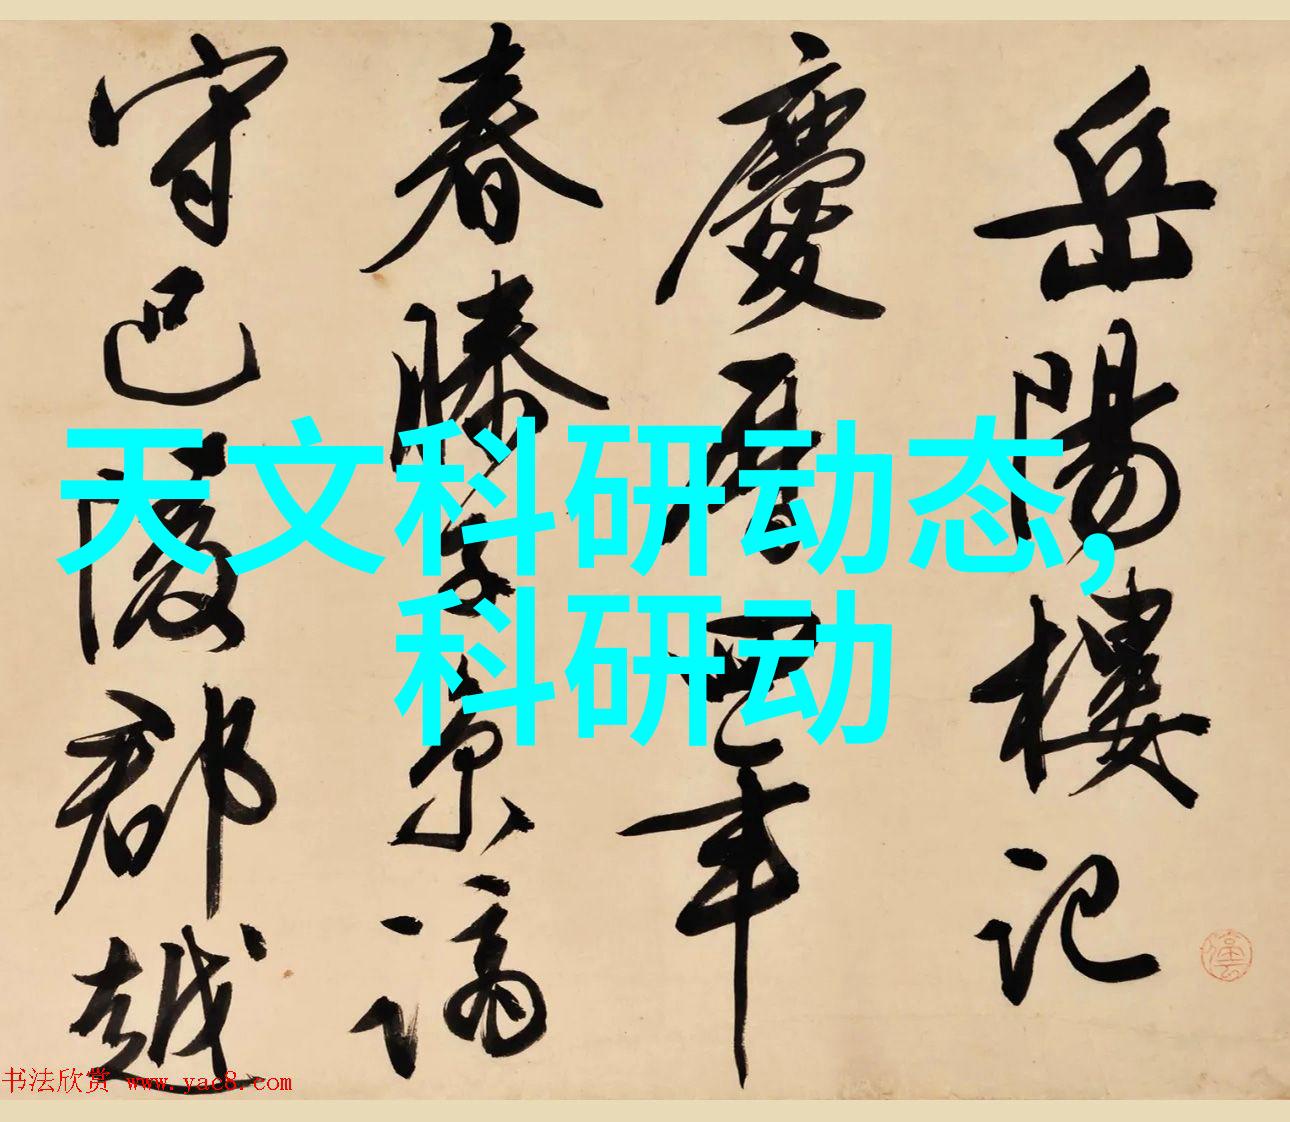 岳陽樓記
慶曆四年
春滕子京謫
守巴陵郡越
天文科研动态,
科研动
书法欣赏 www.yac8.com